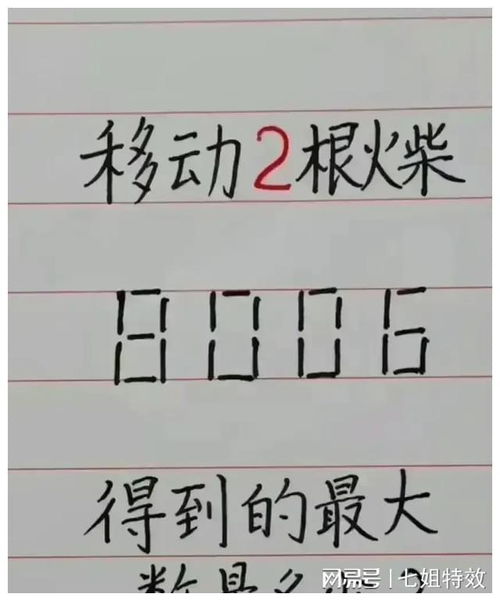 移动2根火柴
8006
得到的最大
网易号 | 七姐特效